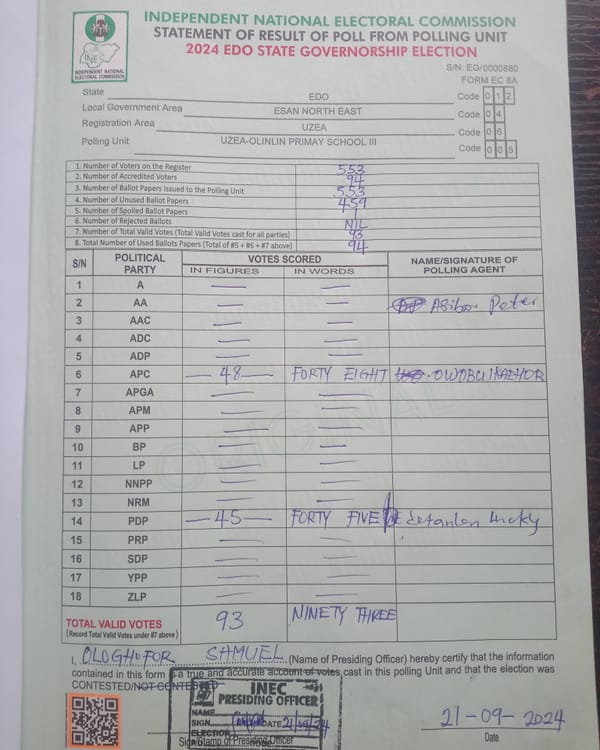 INDEPENDENT NATIONAL ELECTORAL COMMISSION
STATEMENT OF RESULT OF POLL FROM POLLING UNIT
2024 EDO STATE GOVERNORSHIP ELECTION
INEC
INDEPENDENT NATIONAL ELECTORAL COMMISSION
S/N: EG/0000880
FORM EC 8A
State EDO Code 0 1 2
Local Government Area ESAN NORTH EAST Code 0 4
Registration Area UZEA Code 0 6
Polling Unit UZEA-OLINLIN PRIMAY SCHOOL III Code 0 0 5
1. Number of Voters on the Register 553
2. Number of Accredited Voters 94
3. Number of Ballot Papers Issued to the Polling Unit 553
4. Number of Unused Ballot Papers 459
5. Number of Spoiled Ballot Papers 1
6. Number of Rejected Ballots NIL
7. Number of Total Valid Votes (Total Valid Votes cast for all parties) 93
8. Total Number of Used Ballots Papers (Total of #5 + #6 + #7 above) 94
S/N POLITICAL PARTY VOTES SCORED NAME/SIGNATURE OF POLLING AGENT
IN FIGURES IN WORDS
1 A — —
2 AA — — Asibor Peter
3 AAC — —
4 ADC — —
5 ADP — —
6 APC —48— FORTY EIGHT
7 APGA — —
8 APM — —
9 APP — —
10 BP — —
11 LP — —
12 NNPP — —
13 NRM — —
14 PDP —45— FORTY FIVE Lucky
15 PRP — —
16 SDP — —
17 YPP — —
18 ZLP — —
TOTAL VALID VOTES 93 NINETY THREE
(Record Total Valid Votes under #7 above)
I, OLOGHOFOR SAMUEL (Name of Presiding Officer) hereby certify that the information
contained in this form is a true and accurate account of votes cast in this polling Unit and that the election was
CONTESTED/NOT CONTESTED
INEC
PRESIDING OFFICER
NAME
SIGN DATE 21/09/24
ELECTION
Sign/Stamp of Presiding Officer
21-09-2024
Date